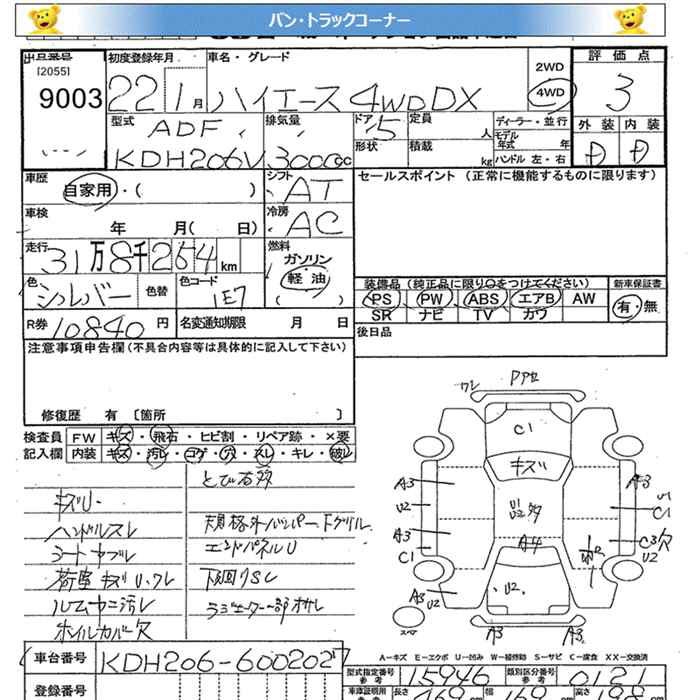 バン・トラックコーナー
出品番号
[2055]
9003
初度登録年月
22 1月
車名・グレード
ハイエース 4WD DX
2WD
4WD
評価点
3
外装 内装
D D
型式
ADF
KDH206V
排気量
3000cc
ドア
5
形状
定員
人
積載
kg
ディーラー・並行
モデル年式 年
ハンドル 左・右
車歴
自家用・( )
シフト
AT
車検
年 月( 日)
冷房
AC
走行
31万8千254km
燃料
ガソリン
軽・油
( )
色
シルバー
色替
色コード
1E7
R券 10840円
名変通知期限 月 日
セールスポイント (正常に機能するものに限ります)
装備品(純正品に限り○をつけてください)
新車保証書
PS PW ABS エアB AW
有・無
SR ナビ TV カワ
後日品
注意事項申告欄(不具合内容等は具体的に記入して下さい)
修復歴 有 〔箇所 〕
検査員
記入欄
FW キズ・飛石・ヒビ割・リペア跡・×要
内装 キズ・汚レ・コゲ・穴・スレ・キレ・破レ
キズU・
ハンドルスレ
シートヤブレ
荷室キズU・ワレ
ルームヤニ汚レ
ホイルカバー欠
とび石多
規格外バンパー、Fグリル
エンドパネルU
下回りSC
ラジエーター一部オサレ
ワレ
C1
キズ
U1
U2多
A4
U2
A3
U2
A3
C1
A3
U2
A3
U1
C1
C3欠
U2
A3
A3
A－キズ E－エクボ U－凹み W－補修跡 S－サビ C－腐食 XX－交換済
車台番号
KDH206-6002027
登録番号
型式指定番号
参考
15946
類別区分番号
参考
0121
車庫証明用
参考
長さ
469
幅
169
高さ
198